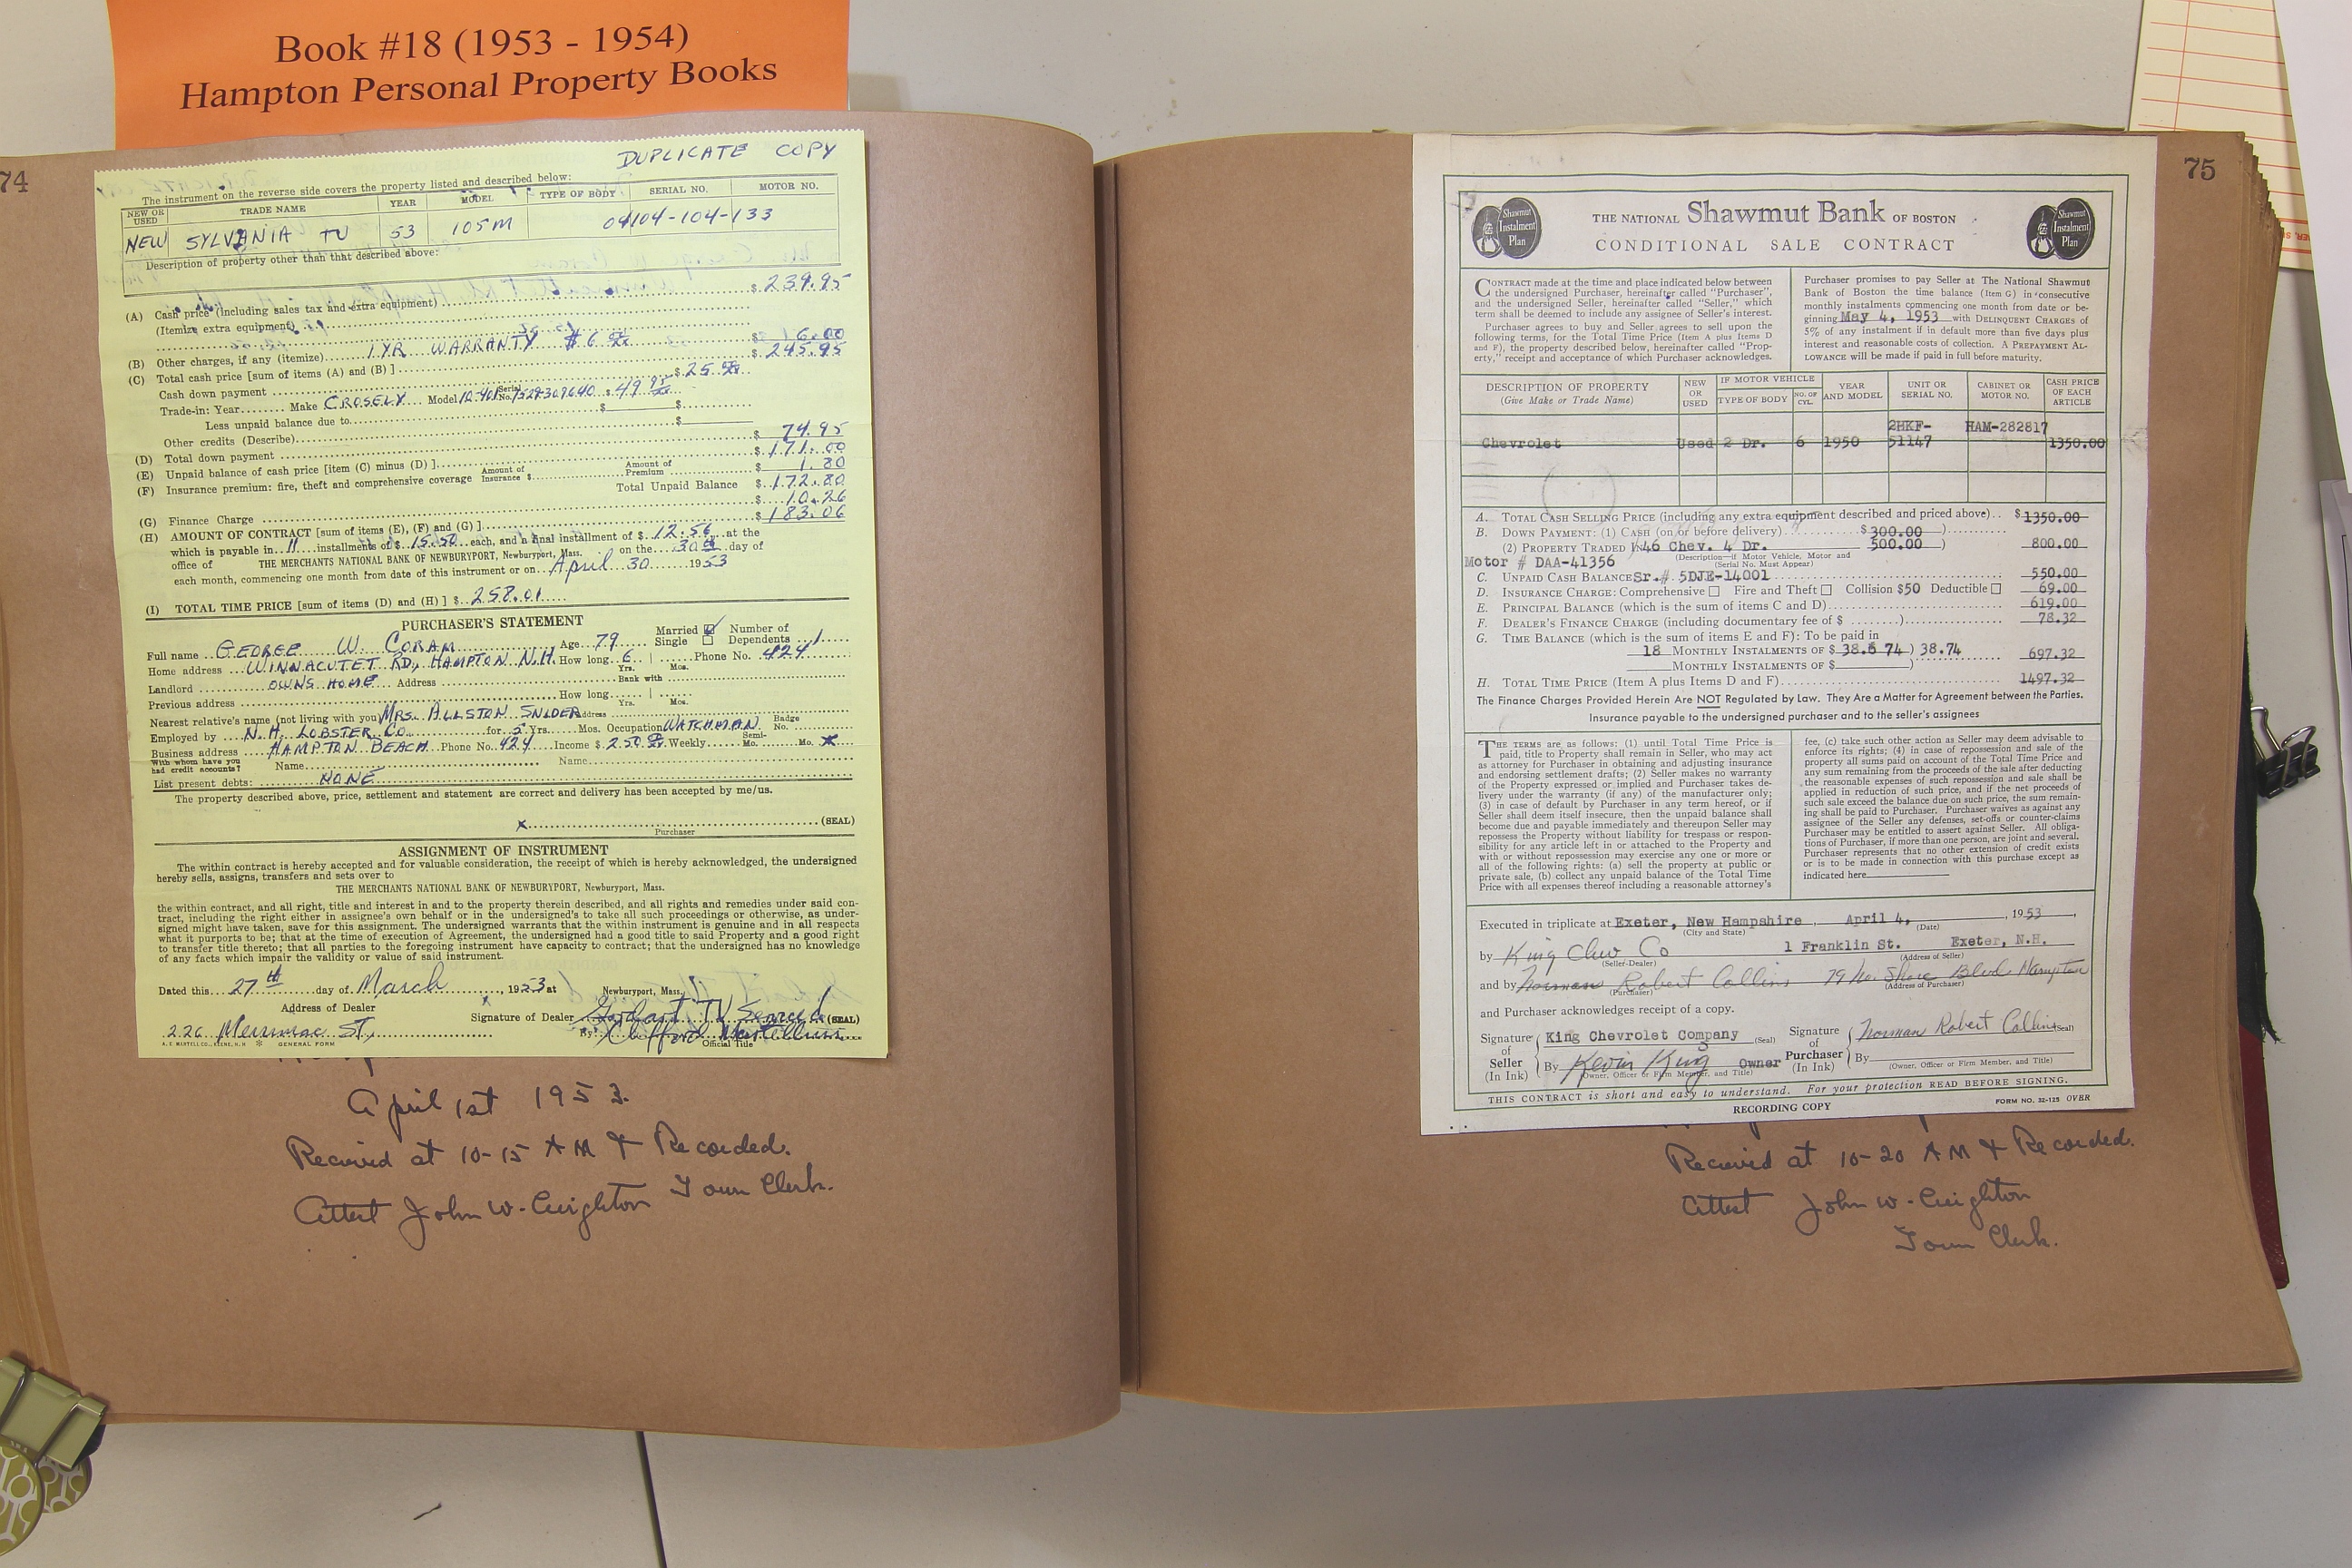 Book #18 (1953 - 1954)
Hampton Personal Property Books
74
DUPLICATE COPY
The instrument on the reverse side covers the property listed and described below:
NEW OR USED TRADE NAME YEAR MODEL TYPE OF BODY SERIAL NO. MOTOR NO.
NEW SYLVANIA TV 53 105M 04104-104-133
Description of property other than that described above:
(A) Cash price (Including sales tax and extra equipment) $ 239.95
(Itemize extra equipment)
(B) Other charges, if any (itemize) 1 YR WARRANTY $6 $ 6.00
(C) Total cash price [sum of items (A) and (B)] $ 245.95
Cash down payment $ 25
Trade-in: Year Make CROSELY Model Serial No. $ 49.95
Less unpaid balance due to $ $
Other credits (Describe) $
(D) Total down payment $ 74.95
(E) Unpaid balance of cash price [item (C) minus (D)] $ 171.00
(F) Insurance premium: fire, theft and comprehensive coverage Amount of Insurance $ Amount of Premium $ 1.80
Total Unpaid Balance $ 172.80
(G) Finance Charge $ 10.26
(H) AMOUNT OF CONTRACT [sum of items (E), (F) and (G)] $ 183.06
which is payable in 11 installments of $ 15.50 each, and a final installment of $ 12.56 at the
office of THE MERCHANTS NATIONAL BANK OF NEWBURYPORT, Newburyport, Mass. on the 30th day of
each month, commencing one month from date of this instrument or on April 30 1953
(I) TOTAL TIME PRICE [sum of items (D) and (H)] $ 258.01
PURCHASER'S STATEMENT
Full name GEORGE W. CORAM Age 79 Married Single Number of Dependents 1
Home address WINNACUTET RD, HAMPTON N.H. How long 6 Yrs. Mos. Phone No. 4241
Landlord OWNS HOME Address Bank with
Previous address How long Yrs. Mos.
Nearest relative's name (not living with you) MRS. ALLSTON SNIDER Address
Employed by N.H. LOBSTER CO. for 5 Yrs. Mos. Occupation WATCHMAN Badge No.
Business address HAMPTON BEACH Phone No. 424 Income $ 250 Weekly Semi-Mo. Mo. X
With whom have you had credit accounts? Name Name
List present debts: NONE
The property described above, price, settlement and statement are correct and delivery has been accepted by me/us.
x (SEAL)
Purchaser
ASSIGNMENT OF INSTRUMENT
The within contract is hereby accepted and for valuable consideration, the receipt of which is hereby acknowledged, the undersigned
hereby sells, assigns, transfers and sets over to
THE MERCHANTS NATIONAL BANK OF NEWBURYPORT, Newburyport, Mass.
the within contract, and all right, title and interest in and to the property therein described, and all rights and remedies under said con-
tract, including the right either in assignee's own behalf or in the undersigned's to take all such proceedings or otherwise, as under-
signed might have taken, save for this assignment. The undersigned warrants that the within instrument is genuine and in all respects
what it purports to be; that at the time of execution of Agreement, the undersigned had a good title to said Property and a good right
to transfer title thereto; that all parties to the foregoing instrument have capacity to contract; that the undersigned has no knowledge
of any facts which impair the validity or value of said instrument.
Dated this 27th day of March, 1953 at Newburyport, Mass.
Address of Dealer
Signature of Dealer TV Service (SEAL)
226 Merrimac St. By Clifford
Official Title
A. E. MARTELL CO., KEENE, N.H. GENERAL FORM
April 1st 1953.
Received at 10-15 AM & Recorded.
Attest John W. Creighton Town Clerk.
75
Shawmut Instalment Plan
THE NATIONAL Shawmut Bank OF BOSTON
CONDITIONAL SALE CONTRACT
Shawmut Instalment Plan
CONTRACT made at the time and place indicated below between
the undersigned Purchaser, hereinafter called "Purchaser",
and the undersigned Seller, hereinafter called "Seller," which
term shall be deemed to include any assignee of Seller's interest.
Purchaser agrees to buy and Seller agrees to sell upon the
following terms, for the Total Time Price (Item A plus Items D
and F), the property described below, hereinafter called "Prop-
erty," receipt and acceptance of which Purchaser acknowledges.
Purchaser promises to pay Seller at The National Shawmut
Bank of Boston the time balance (Item G) in consecutive
monthly instalments commencing one month from date or be-
ginning May 4, 1953 with DELINQUENT CHARGES of
5% of any instalment if in default more than five days plus
interest and reasonable costs of collection. A PREPAYMENT AL-
LOWANCE will be made if paid in full before maturity.
DESCRIPTION OF PROPERTY (Give Make or Trade Name) NEW OR USED IF MOTOR VEHICLE TYPE OF BODY NO. OF CYL. YEAR AND MODEL UNIT OR SERIAL NO. CABINET OR MOTOR NO. CASH PRICE OF EACH ARTICLE
Chevrolet Used 2 Dr. 6 1950 2HKF-51147 HAM-282817 1350.00
A. TOTAL CASH SELLING PRICE (including any extra equipment described and priced above) $1350.00
B. DOWN PAYMENT: (1) CASH (on or before delivery) $300.00 )
(2) PROPERTY TRADED IN 46 Chev. 4 Dr. 500.00 ) 800.00
Motor # DAA-41356 (Description—if Motor Vehicle, Motor and Serial No. Must Appear)
C. UNPAID CASH BALANCE Sr.# 5DJE-14001 550.00
D. INSURANCE CHARGE: Comprehensive Fire and Theft Collision $50 Deductible 69.00
E. PRINCIPAL BALANCE (which is the sum of items C and D) 619.00
F. DEALER'S FINANCE CHARGE (including documentary fee of $ ) 78.32
G. TIME BALANCE (which is the sum of items E and F): To be paid in
18 MONTHLY INSTALMENTS OF $ 38.6 74 ) 38.74 697.32
MONTHLY INSTALMENTS OF $ )
H. TOTAL TIME PRICE (Item A plus Items D and F) 1497.32
The Finance Charges Provided Herein Are NOT Regulated by Law. They Are a Matter for Agreement between the Parties.
Insurance payable to the undersigned purchaser and to the seller's assignees
THE TERMS are as follows: (1) until Total Time Price is
paid, title to Property shall remain in Seller, who may act
as attorney for Purchaser in obtaining and adjusting insurance
and endorsing settlement drafts; (2) Seller makes no warranty
of Property expressed or implied and Purchaser takes de-
livery under the warranty (if any) of the manufacturer only;
(3) in case of default by Purchaser in any term hereof, or if
Seller shall deem itself insecure, then the unpaid balance shall
become due and payable immediately and thereupon Seller may
repossess the Property without liability for trespass or respon-
sibility for any article left in or attached to the Property and
with or without repossession may exercise any one or more or
all of the following rights: (a) sell the property at public or
private sale, (b) collect any unpaid balance of the Total Time
Price with all expenses thereof including a reasonable attorney's
fee, (c) take such other action as Seller may deem advisable to
enforce its rights; (4) in case of repossession and sale of the
property all sums paid on account of the Total Time Price and
any sum remaining from the proceeds of the sale after deducting
the reasonable expenses of such repossession and sale shall be
applied in reduction of such price, and if the net proceeds of
such sale exceed the balance due on such price, the sum remain-
ing shall be paid to Purchaser. Purchaser waives as against any
assignee of the Seller any defenses, set-offs or counter-claims
Purchaser may be entitled to assert against Seller. All obliga-
tions of Purchaser, if more than one person, are joint and several.
Purchaser represents that no other extension of credit exists
or is to be made in connection with this purchase except as
indicated here
Executed in triplicate at Exeter, New Hampshire April 4, 1953
(City and State) (Date)
by King Chev Co 1 Franklin St. Exeter, N.H.
(Seller-Dealer) (Address of Seller)
and by Norman Robert Collins 79 No. Shore Blvd. Hampton
(Purchaser) (Address of Purchaser)
and Purchaser acknowledges receipt of a copy.
Signature of Seller (In Ink) King Chevrolet Company (Seal) Signature of Purchaser (In Ink) Norman Robert Collins (Seal)
By Kevin King Owner By
(Owner, Officer or Firm Member, and Title) (Owner, Officer or Firm Member, and Title)
THIS CONTRACT is short and easy to understand. For your protection READ BEFORE SIGNING.
RECORDING COPY FORM NO. 32-125 OVER
Received at 10-20 AM & Recorded.
Attest John W. Creighton
Town Clerk.